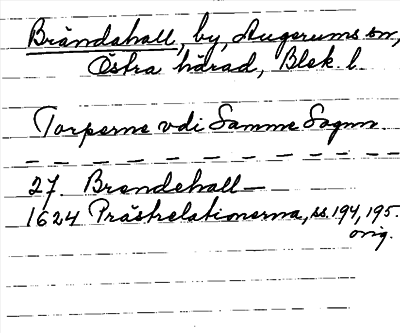 Brändahall, by, Augerums sn,
Östra härad, Blek. l.
Torperne vdi Samme Sognn
27. Brendehall —
1624 Prästrelationerna, ss. 194, 195.
orig.